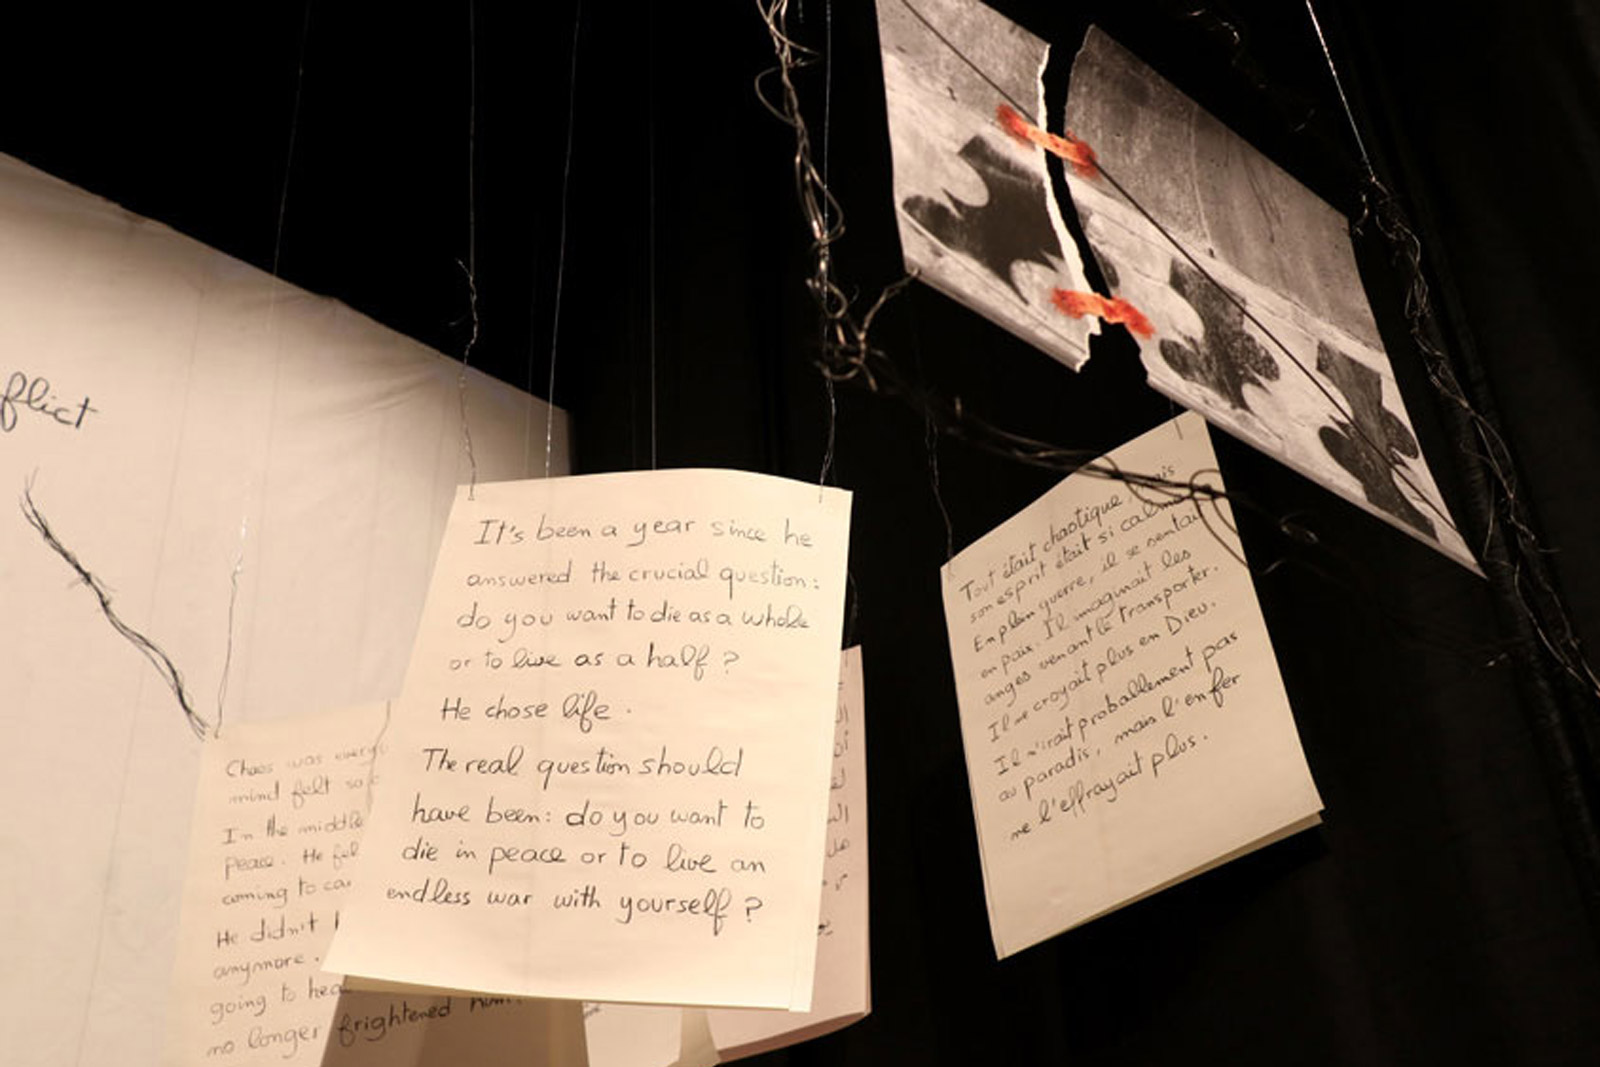 flict
It's been a year since he
answered the crucial question:
do you want to die as a whole
or to live as a half?
He chose life.
The real question should
have been: do you want to
die in peace or to live an
endless war with yourself?
Tout était chaotique, mais
son esprit était si calme
En plein guerre, il se sentait
en paix. Il imaginait les
anges venant le transporter.
Il ne croyait plus en Dieu.
Il n'irait probablement pas
au paradis, mais l'enfer
ne l'effrayait plus.
Chaos was every
mind felt so
In the middle
peace. He fel
coming to car
He didn't
anymore.
going to hea
no longer frightened him.